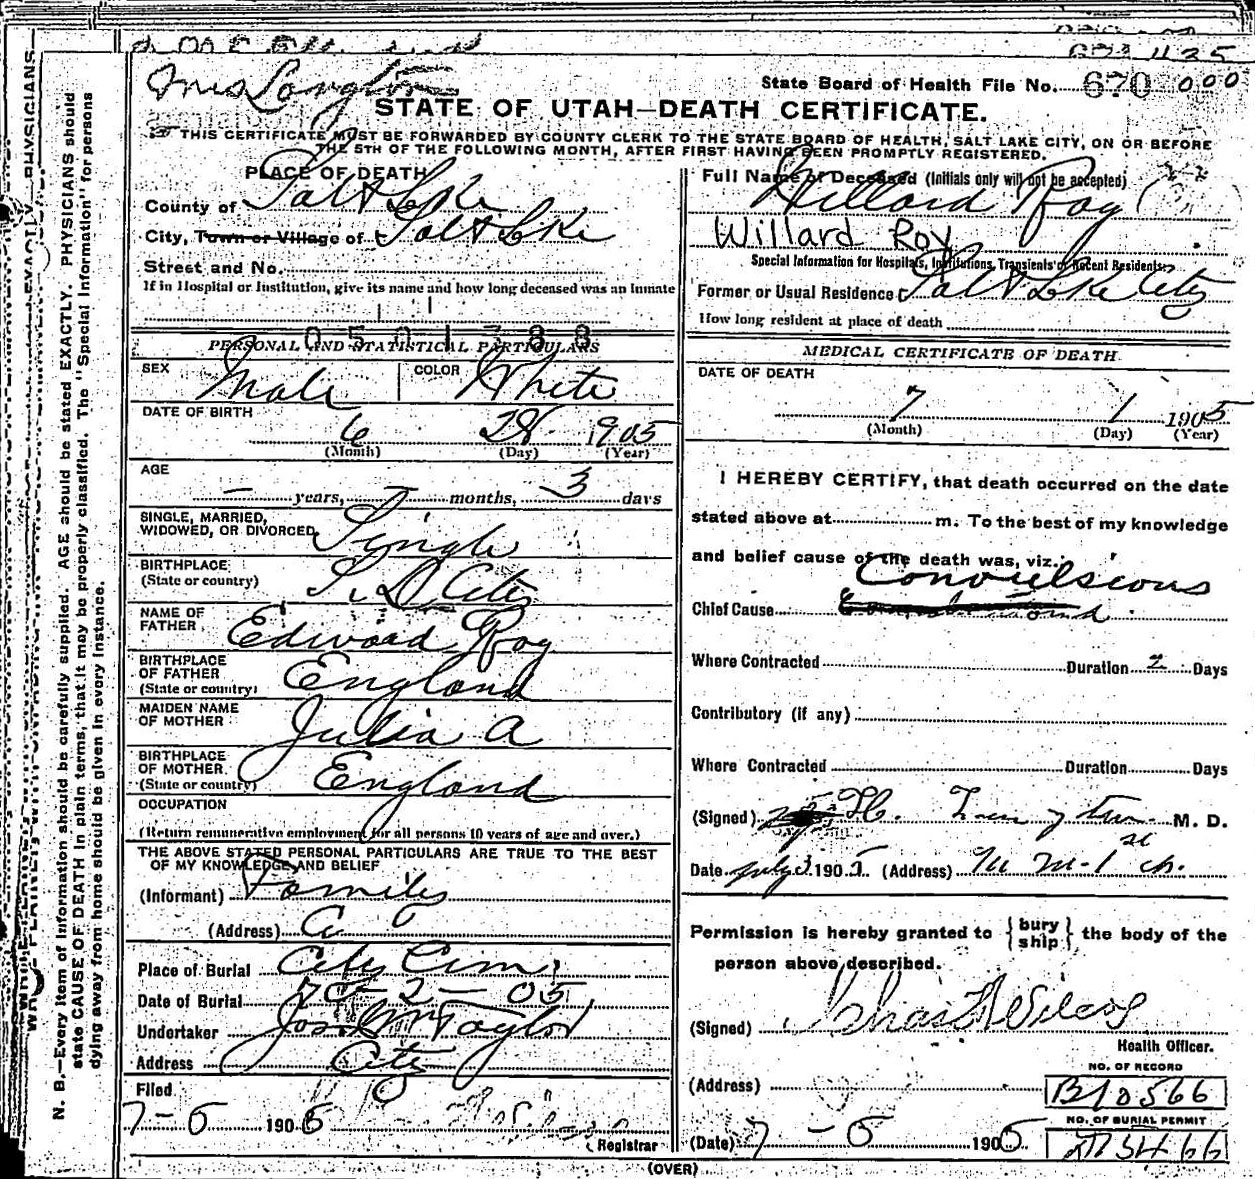 Mrs Langton
State Board of Health File No. 670 000
STATE OF UTAH—DEATH CERTIFICATE.
THIS CERTIFICATE MUST BE FORWARDED BY COUNTY CLERK TO THE STATE BOARD OF HEALTH, SALT LAKE CITY, ON OR BEFORE
THE 5TH OF THE FOLLOWING MONTH, AFTER FIRST HAVING BEEN PROMPTLY REGISTERED.
PLACE OF DEATH
County of Salt Lake
City, Town or Village of Salt Lake
Street and No.
If in Hospital or Institution, give its name and how long deceased was an inmate
0501788
PERSONAL AND STATISTICAL PARTICULARS
SEX Male COLOR White
DATE OF BIRTH
6 28 1905
(Month) (Day) (Year)
AGE
— years, — months, 3 days
SINGLE, MARRIED,
WIDOWED, OR DIVORCED Single
BIRTHPLACE
(State or country) S. L. City
NAME OF
FATHER Edward Roy
BIRTHPLACE
OF FATHER England
(State or country)
MAIDEN NAME
OF MOTHER Julia A
BIRTHPLACE
OF MOTHER England
(State or country)
OCCUPATION
(Return remunerative employment for all persons 10 years of age and over.)
THE ABOVE STATED PERSONAL PARTICULARS ARE TRUE TO THE BEST
OF MY KNOWLEDGE AND BELIEF
(Informant) Family
(Address)
Place of Burial City Cem.
Date of Burial 7 — 2 — 05
Undertaker Jos Wm Taylor
Address City
Filed
7-5 1905
Registrar
Full Name of Deceased (Initials only will not be accepted)
Willard Roy
Willard Roy
Special Information for Hospitals, Institutions, Transients or Recent Residents.
Former or Usual Residence Salt Lake City
How long resident at place of death
MEDICAL CERTIFICATE OF DEATH.
DATE OF DEATH
7 1 1905
(Month) (Day) (Year)
I HEREBY CERTIFY, that death occurred on the date
stated above at m. To the best of my knowledge
and belief cause of the death was, viz.:
Convulsions
Chief Cause
Where Contracted Duration 2 Days
Contributory (if any)
Where Contracted Duration Days
(Signed) M. D.
Date July 3 1905. (Address)
Permission is hereby granted to {bury ship} the body of the
person above described.
(Signed) Chas Wilcox
Health Officer.
(Address)
NO. OF RECORD
B10566
NO. OF BURIAL PERMIT
(Date) 7 - 5 1905
(OVER)
N. B.—Every item of information should be carefully supplied. AGE should be stated EXACTLY. PHYSICIANS should
state CAUSE OF DEATH in plain terms, that it may be properly classified. The "Special Information" for persons
dying away from home should be given in every instance.